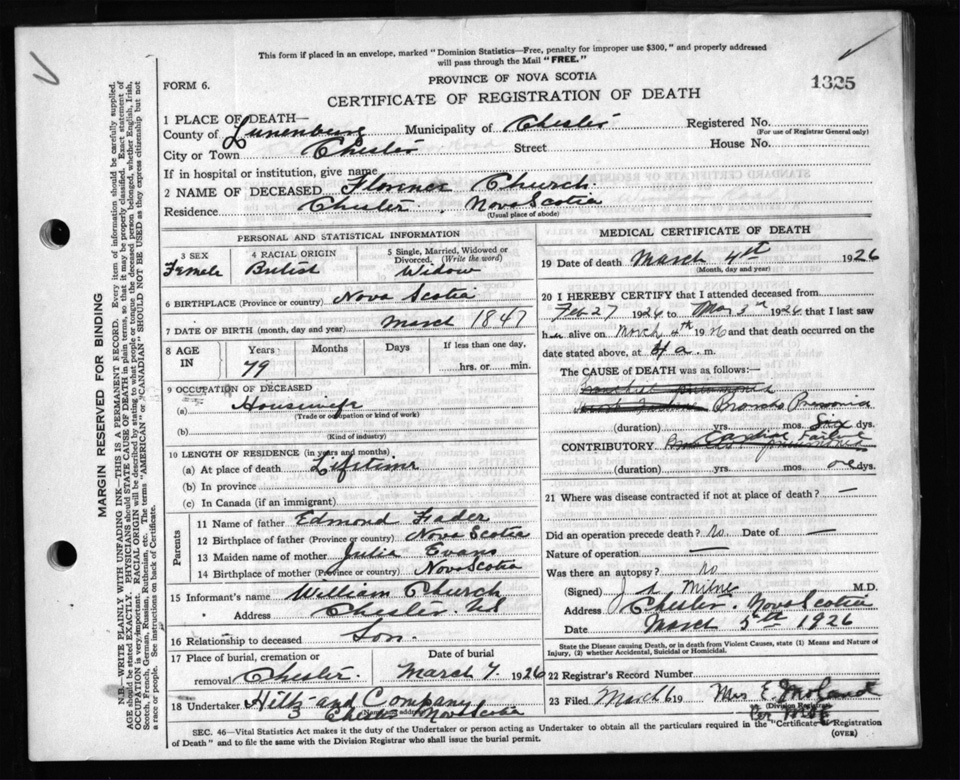 This form if placed in an envelope, marked "Dominion Statistics—Free, penalty for improper use $300," and properly addressed
will pass through the Mail "FREE."
FORM 6.
PROVINCE OF NOVA SCOTIA
1325
CERTIFICATE OF REGISTRATION OF DEATH
MARGIN RESERVED FOR BINDING
N.B.—WRITE PLAINLY WITH UNFADING INK—THIS IS A PERMANENT RECORD. Every item of information should be carefully supplied.
AGE should be stated EXACTLY. PHYSICIANS should STATE CAUSE OF DEATH in plain terms, so that it may be properly classified. Exact statement of
OCCUPATION is very important. RACIAL ORIGIN will be described by stating to what people or tongue the deceased person belonged, whether English, Irish,
Scotch, French, German, Russian, Ruthenian, etc. The terms "AMERICAN" or "CANADIAN" SHOULD NOT BE USED as they express citizenship but not
a race or people. See instructions on back of Certificate.
1 PLACE OF DEATH—
County of Lunenburg Municipality of Chester Registered No.
(For use of Registrar General only)
City or Town Chester Street House No.
If in hospital or institution, give name
2 NAME OF DECEASED Florence Church.
Residence Chester. Nova Scotia
(Usual place of abode)
PERSONAL AND STATISTICAL INFORMATION
3 SEX Female
4 RACIAL ORIGIN British
5 Single, Married, Widowed or Divorced. (Write the word) Widow
6 BIRTHPLACE (Province or country) Nova Scotia
7 DATE OF BIRTH (month, day and year) March 1847
8 AGE IN Years Months Days If less than one day,
79 hrs. or min.
9 OCCUPATION OF DECEASED
(a) Housewife
(Trade or occupation or kind of work)
(b)
(Kind of industry)
10 LENGTH OF RESIDENCE (in years and months)
(a) At place of death Lifetime
(b) In province
(c) In Canada (if an immigrant)
Parents
11 Name of father Edmond Fader
12 Birthplace of father (Province or country) Nova Scotia
13 Maiden name of mother Julia Evans
14 Birthplace of mother (Province or country) Nova Scotia
15 Informant's name William Church
" Address Chester NS
16 Relationship to deceased Son.
17 Place of burial, cremation or removal Chester Date of burial March 7. 1926
18 Undertaker Hiltz and Company
Chester Nova Scotia
MEDICAL CERTIFICATE OF DEATH
19 Date of death March 4th 1926
(Month, day and year)
20 I HEREBY CERTIFY that I attended deceased from
Feb 27 1926 to Mar 3rd 1926 that I last saw
her alive on March 4th 1926 and that death occurred on the
date stated above, at 4 a. m.
The CAUSE of DEATH was as follows:
Broncho Pneumonia
(duration) yrs. mos. Six dys.
CONTRIBUTORY Cardiac Failure
(duration) yrs. mos. one dys.
21 Where was disease contracted if not at place of death? —
Did an operation precede death? no Date of —
Nature of operation —
Was there an autopsy? no
(Signed) Milne M.D.
Address Chester. Nova Scotia
Date March 5th 1926
State the Disease causing Death, or in death from Violent Causes, state (1) Means and Nature of
Injury, (2) whether Accidental, Suicidal or Homicidal.
22 Registrar's Record Number
23 Filed March 6 19 Mrs E.
(Division Registrar)
SEC. 46—Vital Statistics Act makes it the duty of the Undertaker or person acting as Undertaker to obtain all the particulars required in the "Certificate of Registration
of Death" and to file the same with the Division Registrar who shall issue the burial permit.
(OVER)